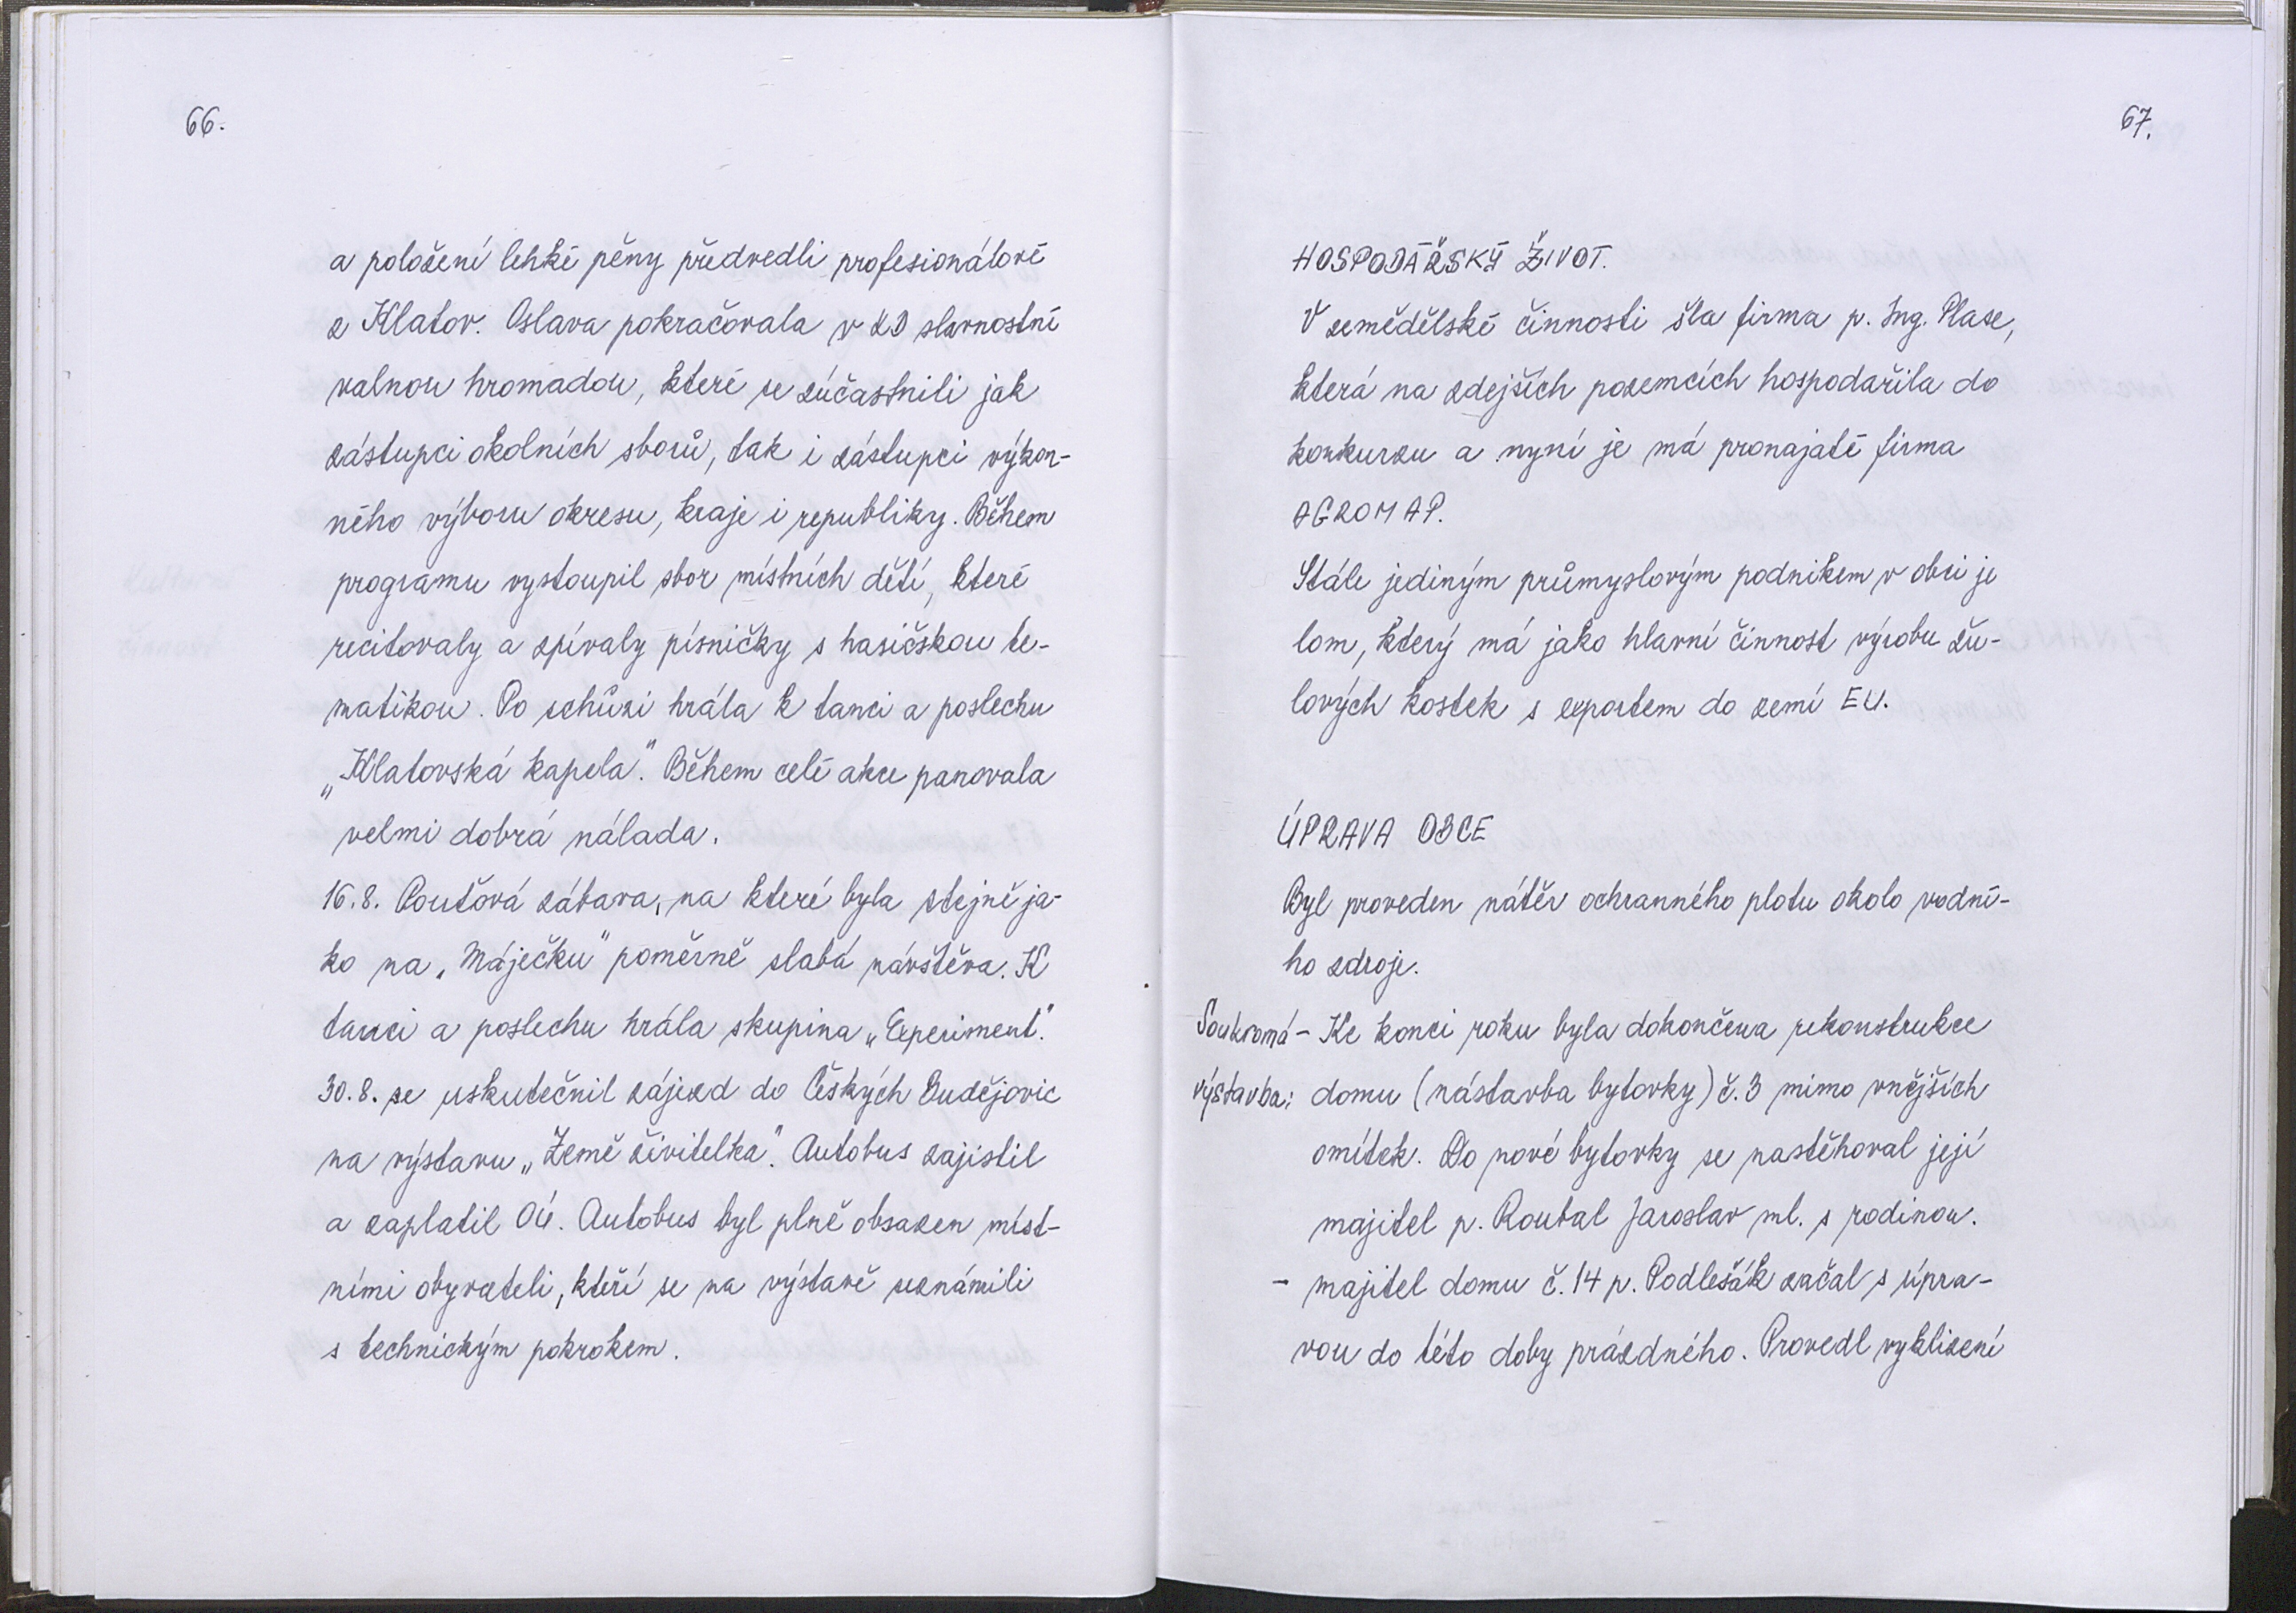 66.
a položení lehké pěny předvedli profesionálové
z Klatov. Oslava pokračovala v KD slavnostní
valnou hromadou, které se zúčastnili jak
zástupci okolních sborů, tak i zástupci výkon-
ného výboru okresu, kraje i republiky. Během
programu vystoupil sbor místních dětí, které
recitovaly a zpívaly písničky s hasičskou te-
matikou. Po schůzi hrála k tanci a poslechu
„Klatovská kapela". Během celé akce panovala
velmi dobrá nálada.
16.8. Pouťová zábava, na které byla stejně ja-
ko na „Máječku" poměrně slabá návštěva. K
tanci a poslechu hrála skupina „Experiment".
30.8. se uskutečnil zájezd do Českých Budějovic
na výstavu „Země živitelka". Autobus zajistil
a zaplatil OÚ. Autobus byl plně obsazen míst-
ními obyvateli, kteří se na výstavě seznámili
s technickým pokrokem.
67.
HOSPODÁŘSKÝ ŽIVOT.
V zemědělské činnosti šla firma p. Ing. Plase,
která na zdejších pozemcích hospodařila do
konkurzu a nyní je má pronajaté firma
AGROMAP.
Stále jediným průmyslovým podnikem v obci je
lom, který má jako hlavní činnost výrobu žu-
lových kostek s exportem do zemí EU.
ÚPRAVA OBCE
Byl proveden nátěr ochranného plotu okolo vodní-
ho zdroje.
Soukromá - Ke konci roku byla dokončena rekonstrukce
výstavba: domu (nástavba bytovky) č. 3 mimo vnějších
omítek. Do nové bytovky se nastěhoval její
majitel p. Roubal Jaroslav ml. s rodinou.
- majitel domu č. 14 p. Podlešák začal s úpra-
vou do této doby prázdného. Provedl vyklizení